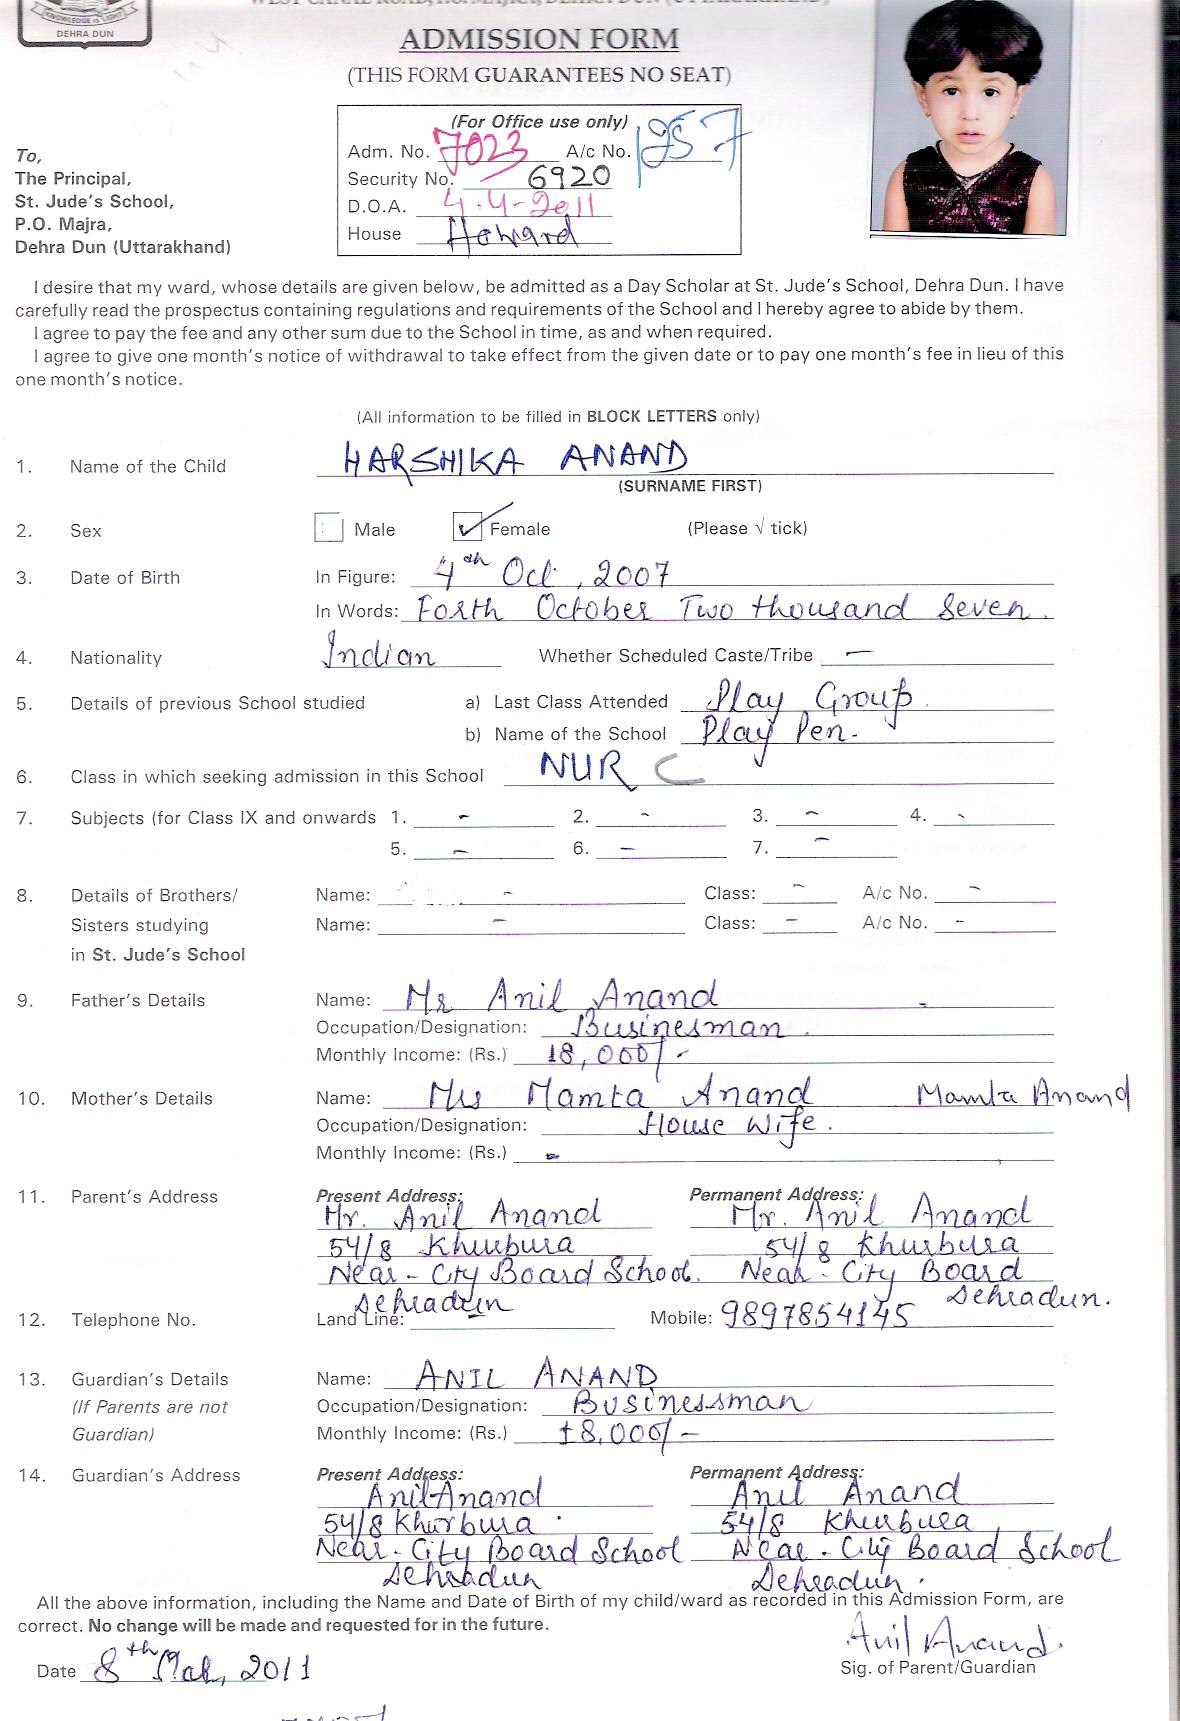 KNOWLEDGE is LIGHT
DEHRA DUN
ADMISSION FORM
(THIS FORM GUARANTEES NO SEAT)
(For Office use only)
Adm. No. 7023 A/c No. 1257
Security No. 6920
D.O.A. 4.4-2011
House Howard
To,
The Principal,
St. Jude's School,
P.O. Majra,
Dehra Dun (Uttarakhand)
I desire that my ward, whose details are given below, be admitted as a Day Scholar at St. Jude's School, Dehra Dun. I have
carefully read the prospectus containing regulations and requirements of the School and I hereby agree to abide by them.
I agree to pay the fee and any other sum due to the School in time, as and when required.
I agree to give one month's notice of withdrawal to take effect from the given date or to pay one month's fee in lieu of this
one month's notice.
(All information to be filled in BLOCK LETTERS only)
1. Name of the Child HARSHIKA ANAND
(SURNAME FIRST)
2. Sex Male ✓ Female (Please √ tick)
3. Date of Birth In Figure: 4th Oct, 2007
In Words: Forth October Two thousand Seven.
4. Nationality Indian Whether Scheduled Caste/Tribe —
5. Details of previous School studied a) Last Class Attended Play Group.
b) Name of the School Play Pen.
6. Class in which seeking admission in this School NUR C
7. Subjects (for Class IX and onwards 1. - 2. - 3. - 4. -
5. - 6. - 7. -
8. Details of Brothers/ Name: - Class: - A/c No. -
Sisters studying Name: - Class: - A/c No. -
in St. Jude's School
9. Father's Details Name: Mr Anil Anand -
Occupation/Designation: Businesman.
Monthly Income: (Rs.) 18,000/-
10. Mother's Details Name: Mrs Mamta Anand Mamta Anand
Occupation/Designation: House Wife.
Monthly Income: (Rs.) -
11. Parent's Address Present Address: Permanent Address:
Mr. Anil Anand Mr. Anil Anand
54/8 Khurbura 54/8 Khurbura
Near - City Board School. Near - City Board
Dehradun Dehradun.
12. Telephone No. Land Line: - Mobile: 9897854145
13. Guardian's Details Name: ANIL ANAND
(If Parents are not Occupation/Designation: Businessman
Guardian) Monthly Income: (Rs.) 18,000/-
14. Guardian's Address Present Address: Permanent Address:
Anil Anand Anil Anand
54/8 Khurbura 54/8 Khurbura
Near - City Board School Near - City Board School
Dehradun Dehradun.
All the above information, including the Name and Date of Birth of my child/ward as recorded in this Admission Form, are
correct. No change will be made and requested for in the future.
Anil Anand.
Date 8th Mar, 2011 Sig. of Parent/Guardian